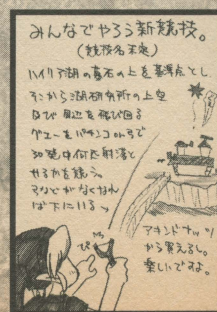 みんなでやろう新競技。
(競技名未定)
ハイリア湖の真石の上を基準点とし
そこから湖研究所の上空
及び 周辺を飛び回る
グエーをパチンコのみで
30発中何匹射落と
せるかを競う。
マメでがなくなん
ば下にいる
アキンドナッツ
から買えるし。
楽しいですよ。